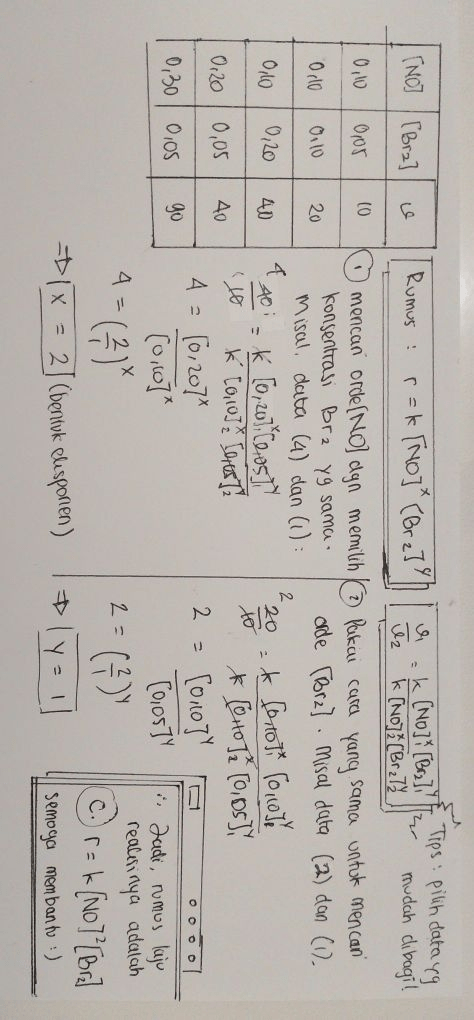 [NO] [Br₂] v
0,10 0,05 10
0,10 0,10 20
0,10 0,20 40
0,20 0,05 40
0,30 0,05 90
Rumus : r = k [NO]ˣ [Br₂]ʸ
v₁/v₂ = k [NO]ˣ₁ [Br₂]ʸ₁ / k [NO]ˣ₂ [Br₂]ʸ₂
Tips : pilih data yg
mudah dibagi!
① mencari orde [NO] dgn memilih
konsentrasi Br₂ yg sama.
Misal, data (4) dan (1) :
4 40/10 = k [0,20]ˣ₁ [0,05]ʸ₁ / k [0,10]ˣ₂ [0,05]ʸ₂
4 = [0,20]ˣ / [0,10]ˣ
4 = (2/1)ˣ
⇒ x = 2 (bentuk eksponen)
② Pakai cara yang sama untuk mencari
orde [Br₂]. Misal data (2) dan (1).
2 20/10 = k [0,10]ˣ₁ [0,10]ʸ₂ / k [0,10]ˣ₂ [0,05]ʸ₁
2 = [0,10]ʸ / [0,05]ʸ
2 = (2/1)ʸ
⇒ y = 1
∴ Jadi, rumus laju
reaksinya adalah
C. r = k [NO]² [Br₂]
semoga membantu :)